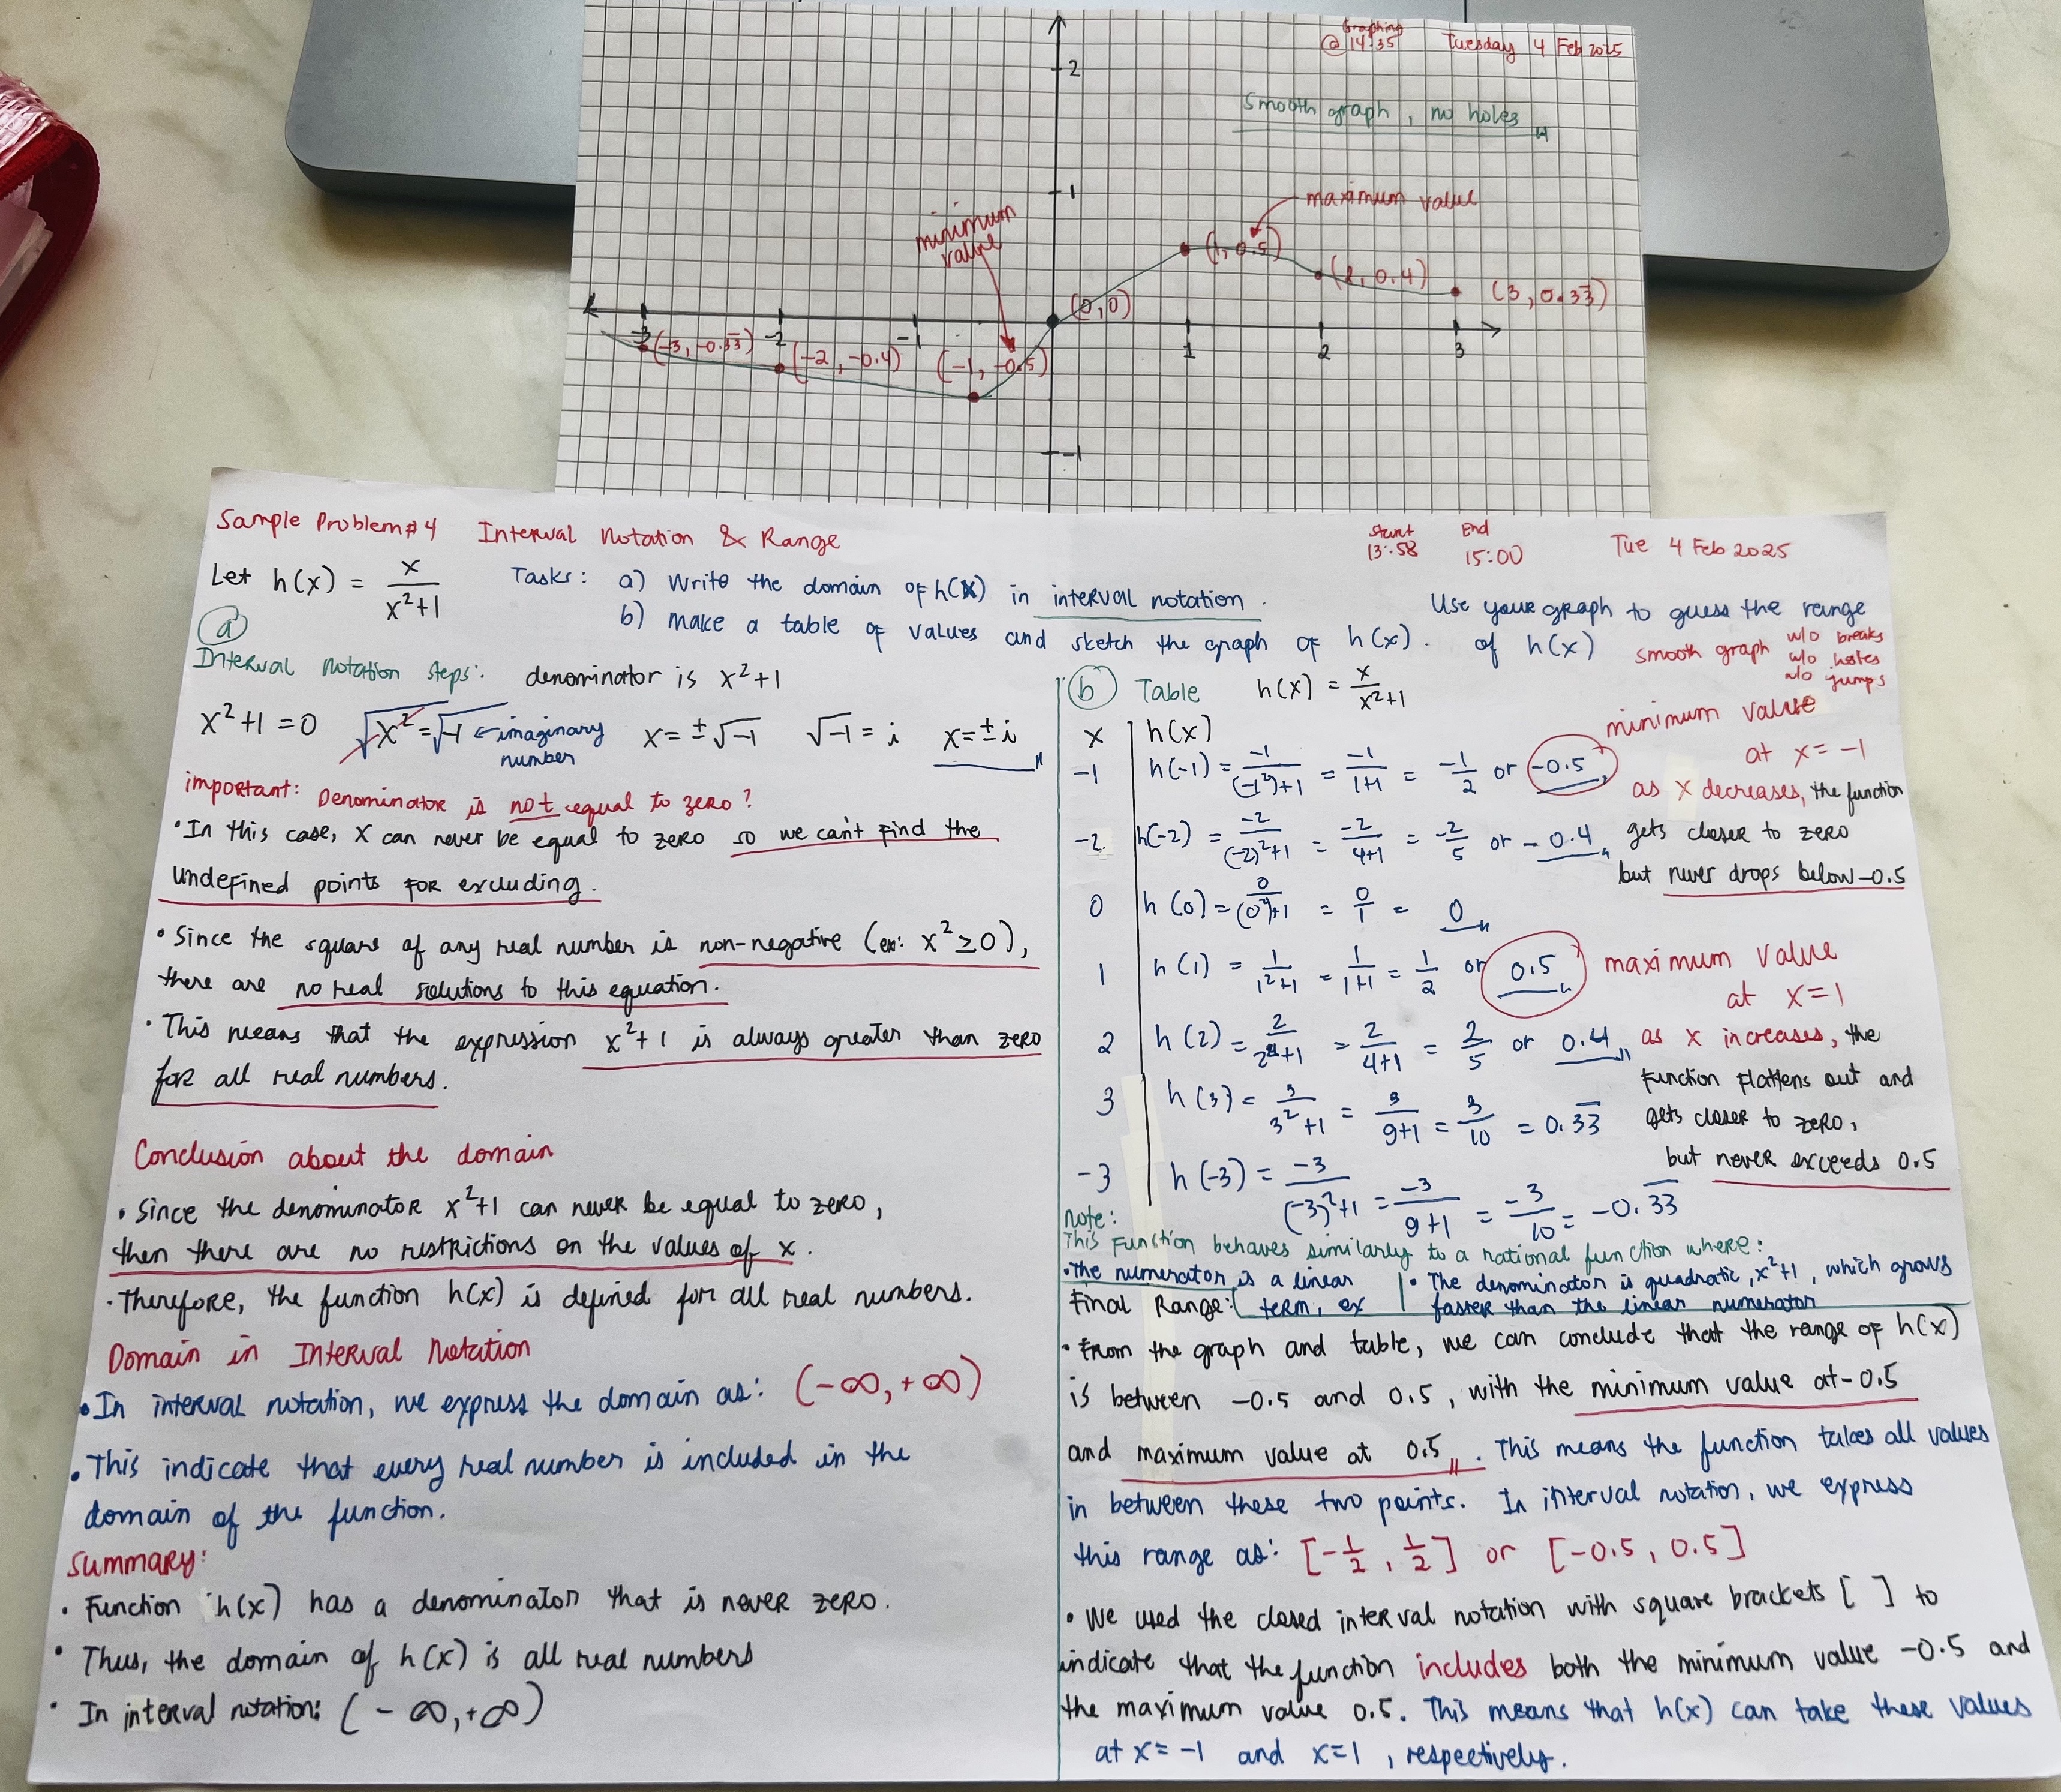 Graphing
@ 14:35 Tuesday 4 Feb 2025
2
Smooth graph, no holes
1
maximum value
minimum
value
(1, 0.5)
(2, 0.4)
(3, 0.3̅3̅)
(0,0)
-3 -2 -1 1 2 3
(-3, -0.3̅3̅)
(-2, -0.4)
(-1, -0.5)
-1
Sample Problem #4 Interval Notation & Range
Start End
13:58 15:00
Tue 4 Feb 2025
Let h(x) = x/(x²+1)
Tasks: a) Write the domain of h(x) in interval notation.
b) make a table of values and sketch the graph of h(x). Use your graph to guess the range
of h(x)
smooth graph w/o breaks
w/o holes
w/o jumps
a
Interval Notation Steps: denominator is x²+1
x²+1=0 √x² = √-1 ← imaginary
number
x = ±√-1 √-1 = i x = ± i
important: Denominator is not equal to zero?
• In this case, x can never be equal to zero so we can't find the
undefined points for excluding.
• Since the square of any real number is non-negative (ex: x² ≥ 0),
there are no real solutions to this equation.
• This means that the expression x²+1 is always greater than zero
for all real numbers.
Conclusion about the domain
• Since the denominator x²+1 can never be equal to zero,
then there are no restrictions on the values of x.
• Therefore, the function h(x) is defined for all real numbers.
Domain in Interval Notation
• In interval notation, we express the domain as: (-∞, +∞)
• This indicate that every real number is included in the
domain of the function.
Summary:
• Function h(x) has a denominator that is never zero.
• Thus, the domain of h(x) is all real numbers
• In interval notation: (-∞, +∞)
b Table h(x) = x/(x²+1)
x h(x)
-1 h(-1) = -1/((-1²)+1) = -1/(1+1) = -1/2 or -0.5
minimum value
at x = -1
as x decreases, the function
-2 h(-2) = -2/((-2)²+1) = -2/(4+1) = -2/5 or -0.4
gets closer to zero
but never drops below -0.5
0 h(0) = 0/((0²)+1) = 0/1 = 0
1 h(1) = 1/(1²+1) = 1/(1+1) = 1/2 or 0.5
maximum value
at x=1
2 h(2) = 2/(2²+1) = 2/(4+1) = 2/5 or 0.4
as x increases, the
function flattens out and
3 h(3) = 3/(3²+1) = 3/(9+1) = 3/10 = 0.3̅3̅
gets closer to zero,
but never exceeds 0.5
-3 h(-3) = -3/((-3)²+1) = -3/(9+1) = -3/10 = -0.3̅3̅
note:
This function behaves similarly to a rational function where:
• The numerator is a linear
term, ex
• The denominator is quadratic, x²+1, which grows
faster than the linear numerator
Final Range:
• From the graph and table, we can conclude that the range of h(x)
is between -0.5 and 0.5, with the minimum value at -0.5
and maximum value at 0.5. This means the function takes all values
in between these two points. In interval notation, we express
this range as: [-1/2, 1/2] or [-0.5, 0.5]
• We used the closed interval notation with square brackets [ ] to
indicate that the function includes both the minimum value -0.5 and
the maximum value 0.5. This means that h(x) can take these values
at x = -1 and x=1, respectively.